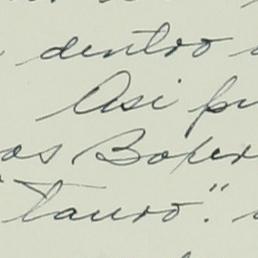 dentro
Asi pu
os Boher
"Tauro".